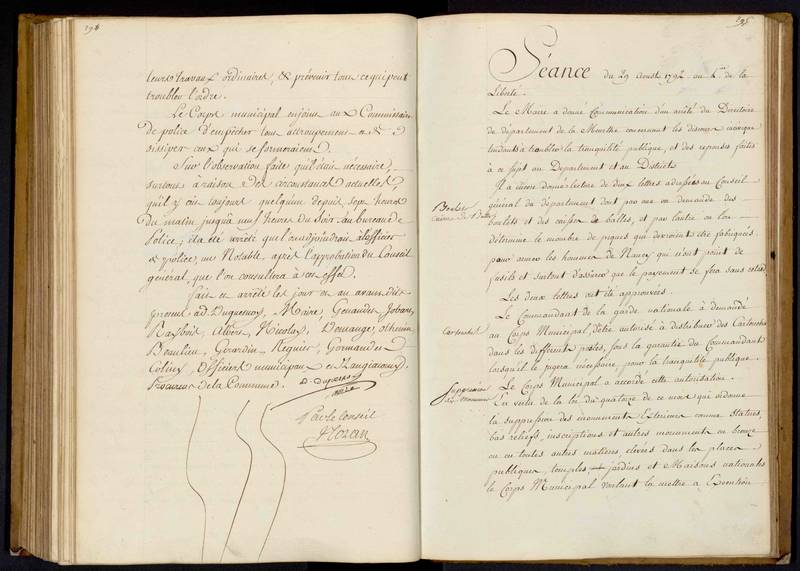 194
leurs travaux ordinaires, & prévenir tous ce qui peut
troubler l'ordre.
Le Corps municipal enjoins aux Commissaires
de police d'empêcher tous attroupemens et de
dissiper ceux qui se formeroient.
Sur l'observation faite qu'il étais nécessaire,
surtous à raison des circonstances actuelles,
qu'il y ais toujours quelquun depuis sept heures
du matin jusqu'à neuf heures du Soir au bureau de
Police; il a été arrêté que l'on adjoindrais à l'officier
de police, un Notable, après l'approbation du Conseil
général, que l'on consultera à cet effet.
fait et arrêté les jour et an avant dits
présens ad. Duquesnoy, Maire, Genaudet, Jobart,
Rayboit, Nicolas, Demange,
Beaulieu, Girardin, Regnier, Gormand et
Coliny, Officiers municipaux et
Procureur de la Commune.
D. Duquesnoy
maire
Par le Conseil
195
Séance du 29 Aoust 1792 an 4.me de la
Liberté.
Le Maire a donné Communication d'un arrêté du Directoire
de département de la Meurthe concernant les discours
tendants à troubler la tranquilité publique, et des reponses faites
à ce sujet au Departement et au District.
Il a encore donné lecture de deux lettres adressées au Conseil
général du département dont par une on demande des
boulets et des caisses de balles, et par l'autre on lon
détermine le nombre de piques qui devroient etre fabriquées
pour armer les hommes de Nancy qui n'ont point de
fusils et surtout d'assurer que le payement se fera sans
Les deux lettres ont été approuvées.
Le Commandant de la garde nationale à demandé
au Corps Municipal, d'être autorisé à distribuer des Cartouches
dans les differents postes, sous la garantie du Commandant
lorsqu'il le jugera nécessaire, pour la tranquilité publique.
Le Corps Municipal a accordé cette autorisation.
En vertu de la loi du quatorze de ce mois qui ordonne
la suppression des monuments Extérieurs comme Statues,
bas reliefs, inscriptions et autres monuments en bronze
ou en toutes autres matieres, élevés dans les places
publiques, temples, jardins et Maisons nationales
le Corps Mal Municipal voulant la mettre a Execution
Boulets
Caisses de Balles
Cartouches
Suppression
des monumens